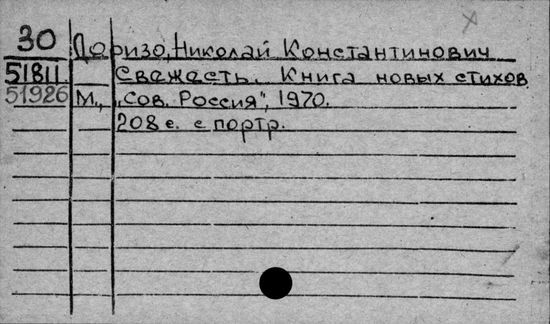 30 Доризо, Николай Константинович
51811 Свежесть. Книга новых стихов
51926 М., „Сов. Россия", 1970.
208 с. с портр.